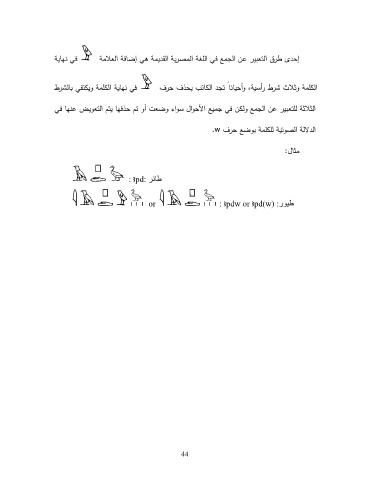 إحدى طرق التعبير عن الجمع في اللغة المصرية القديمة هي إضافة العلامة 𓅱 في نهاية
الكلمة وثلاث شرط رأسية، وأحياناً تجد الكاتب يحذف حرف 𓅱 في نهاية الكلمة ويكتفي بالشرط
الثلاثة للتعبير عن الجمع ولكن في جميع الأحوال سواء وضعت أو تم حذفها يتم التعويض عنها في
الدلالة الصوتية للكلمة بوضع حرف w.
مثال:
طائر :ꜣpd :
طيور: ꜣpdw or ꜣpd(w) : or
44